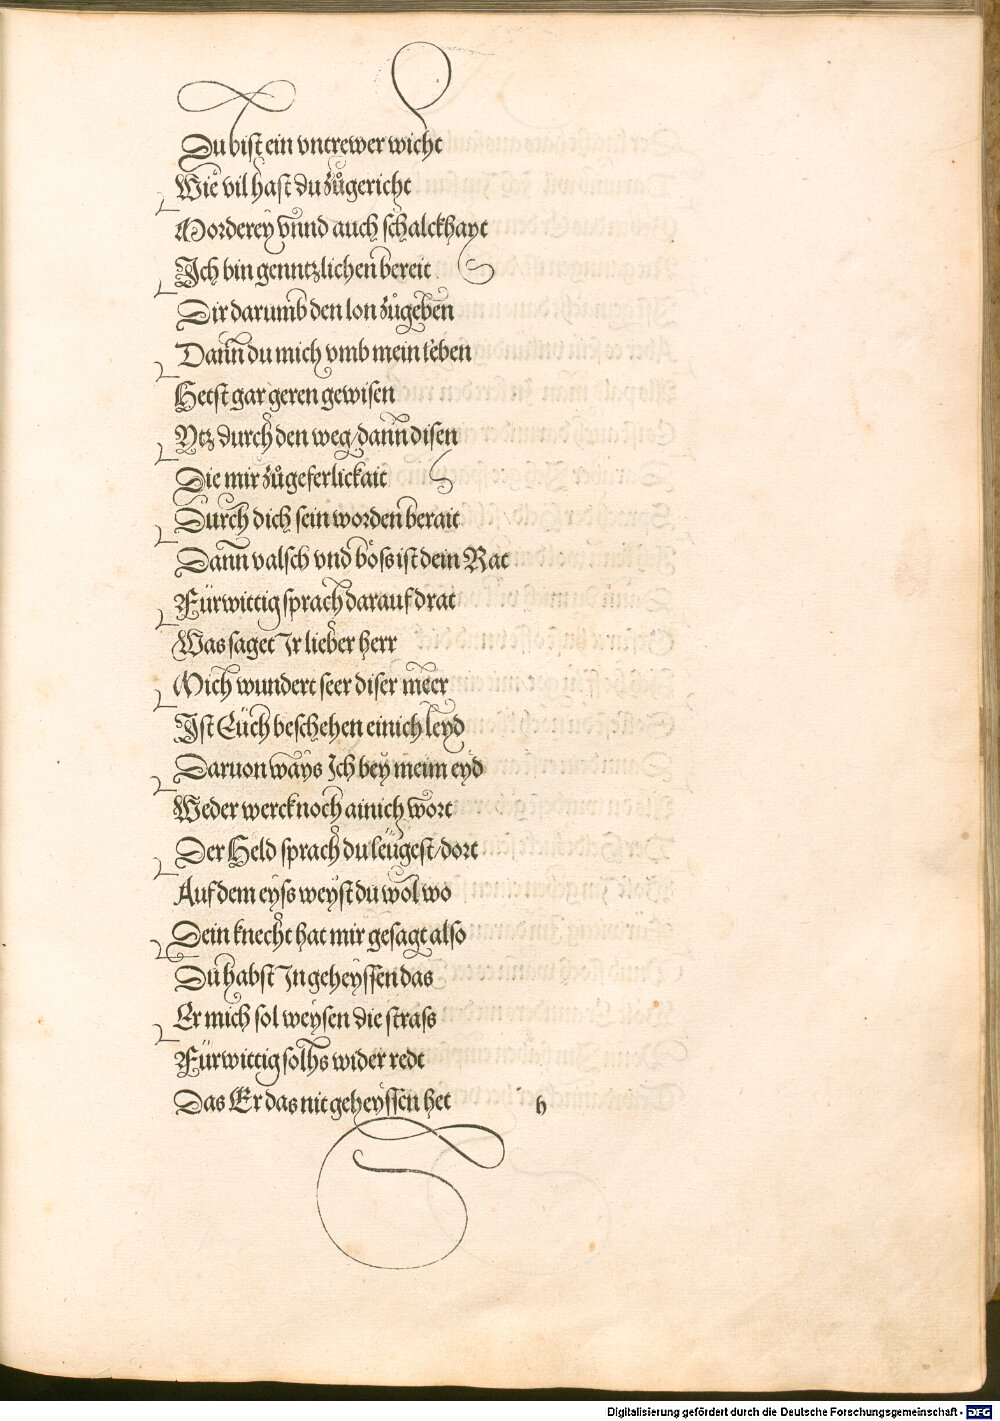 Du bist ein vntrewer wicht
Wie vil hast du zůgericht
Morderey vnnd auch schalckhayt
Ich bin genntzlichen bereit
Dir darumb den lon zůgeben
Dann du mich vmb mein leben
Hetst gar geren gewisen
Ytz durch den weg/dann disen
Die mir zůgeferlickait
Durch dich sein worden berait
Dann valsch vnd böss ist dein Rat
Fürwittig sprach darauf drat
Was saget Ir lieber herr
Mich wundert seer diser meer
Ist Eüch beschehen einich leyd
Daruon ways Ich bey meim eyd
Weder werck noch ainich wort
Der Held sprach du leügest/dort
Auf dem eyss weyst du wol wo
Dein knecht hat mir gesagt also
Du habst In geheyssen das
Er mich sol weysen die strass
Fürwittig solhs wider redt
Das Er das nit geheyssen het
h
Digitalisierung gefördert durch die Deutsche Forschungsgemeinschaft - DFG